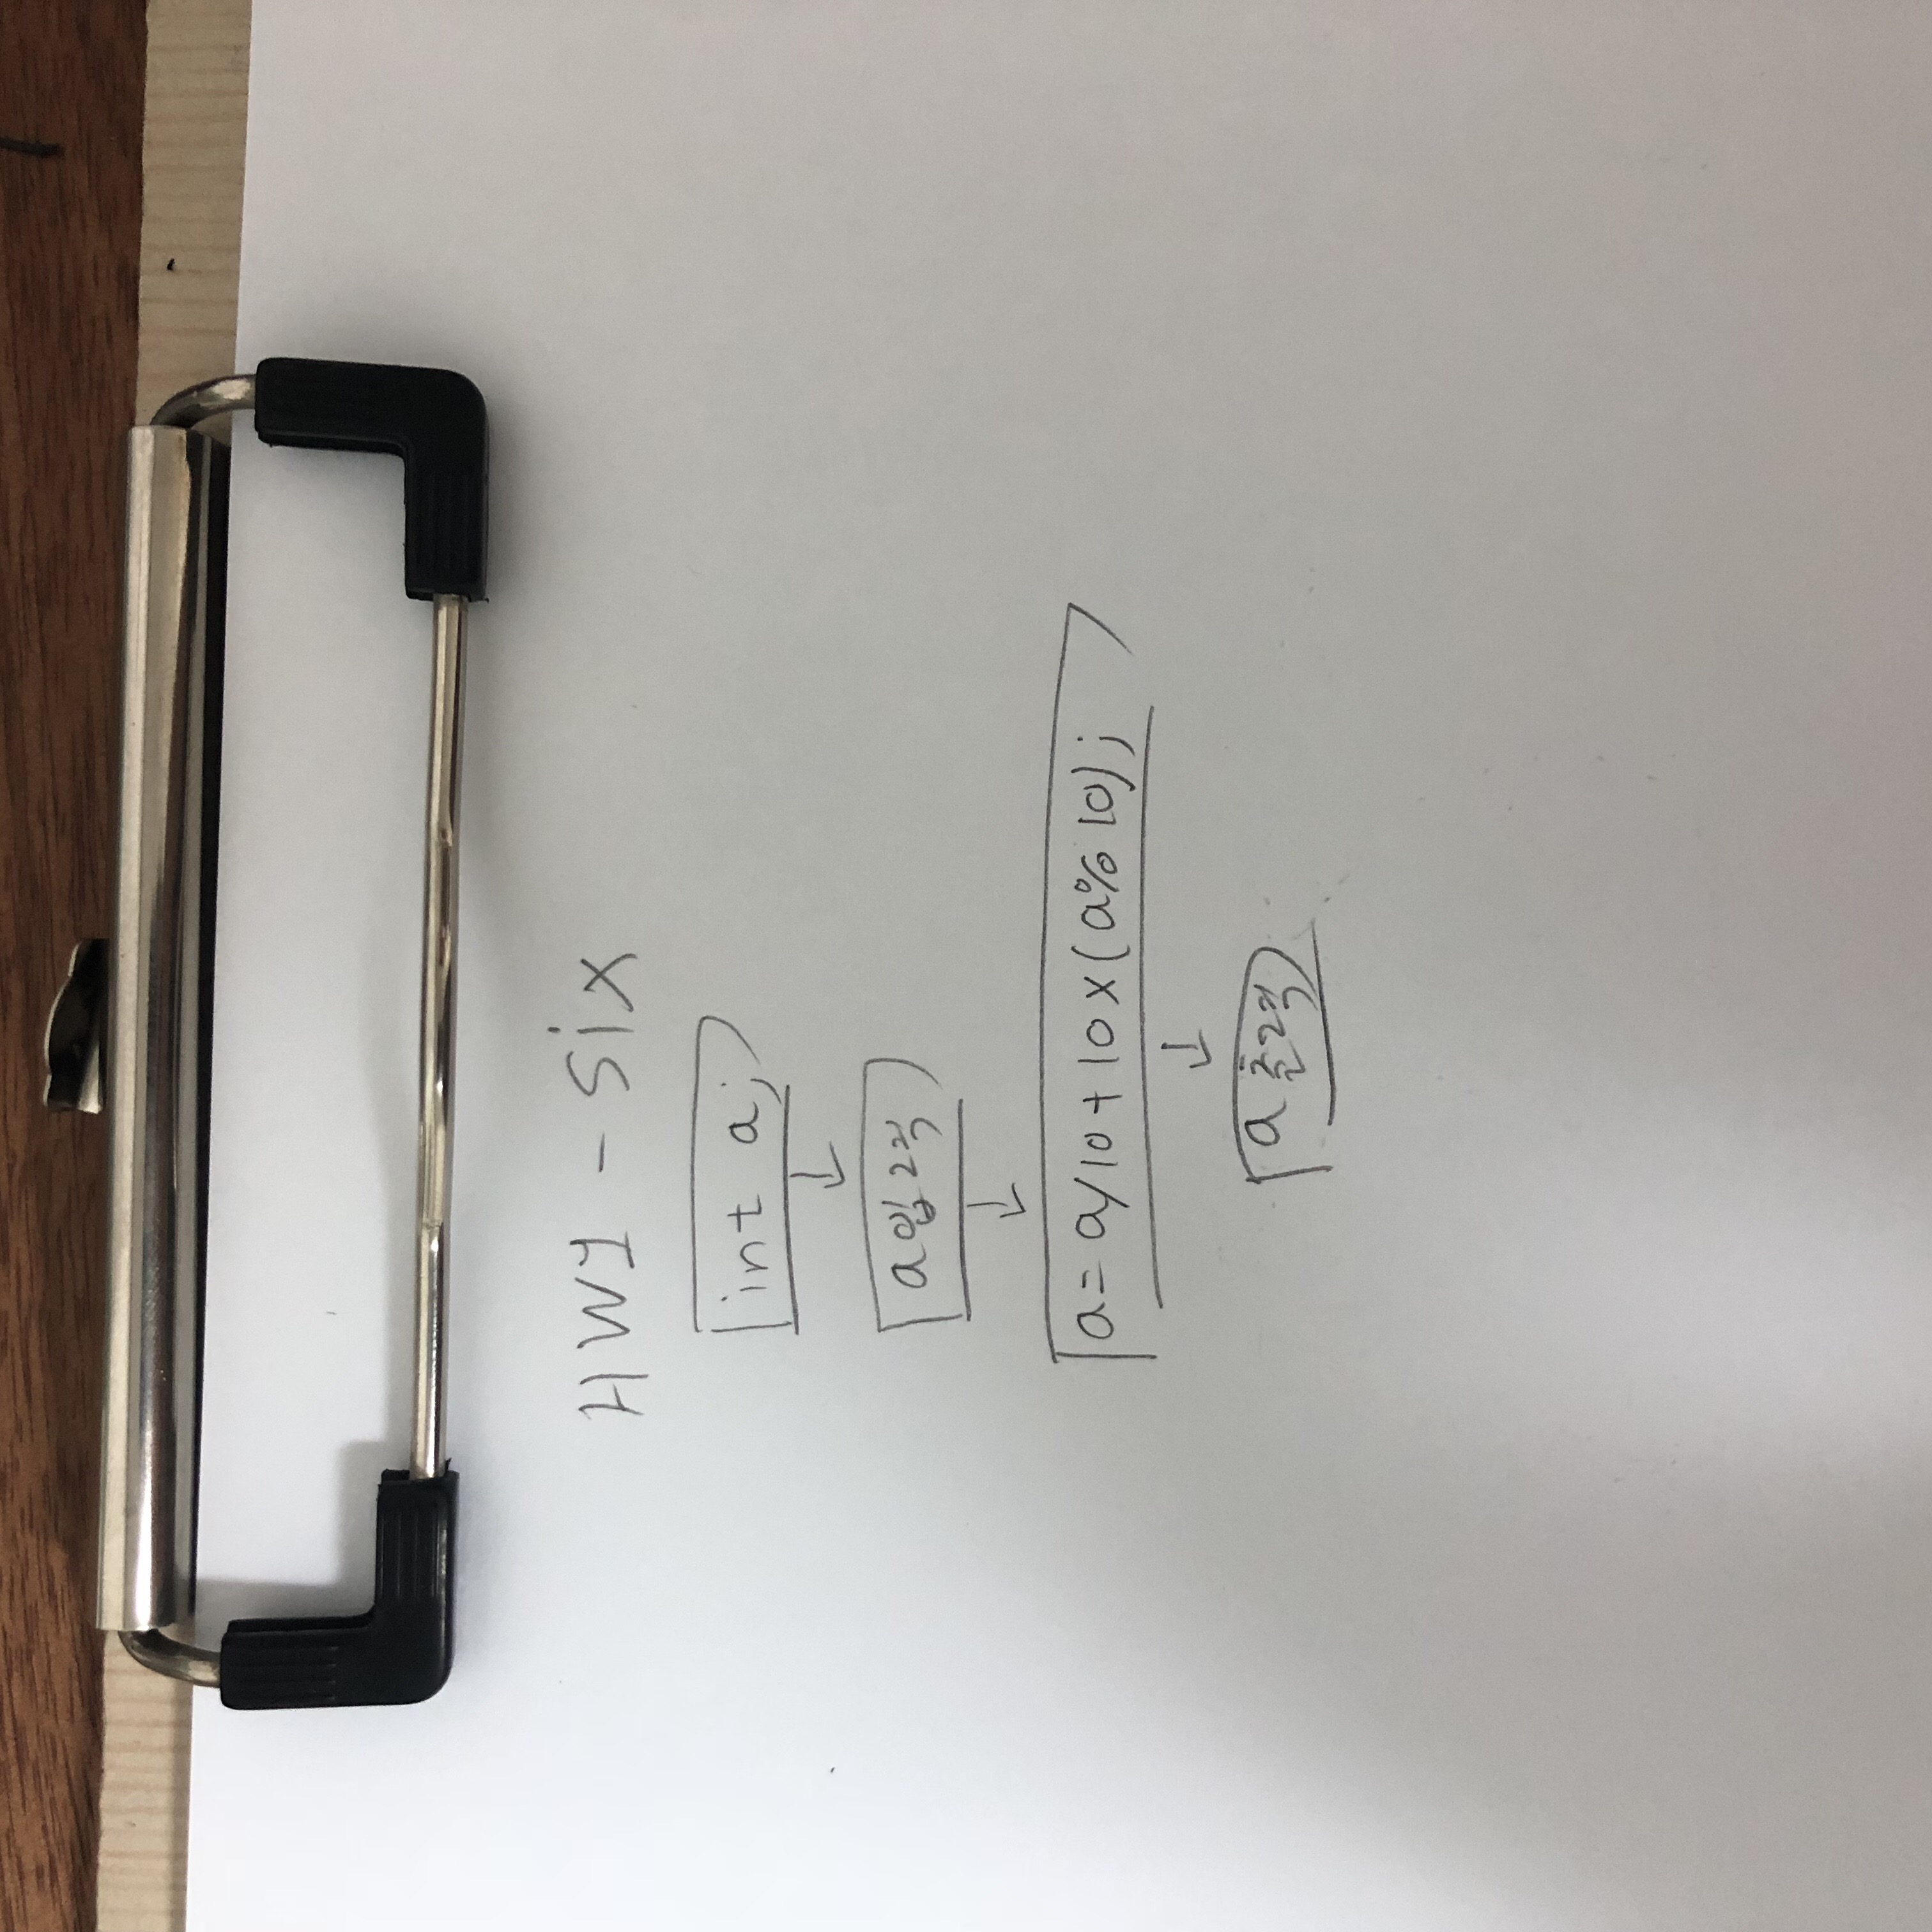 HW1 - Six
int a;
a 입력
a = a/10 + 10 x (a % 10);
a 출력